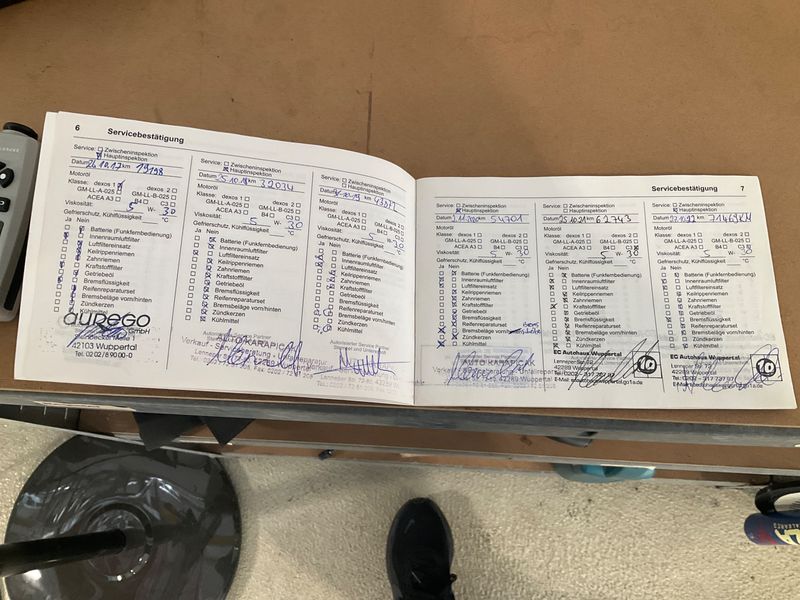 6 Servicebestätigung
Service: Zwischeninspektion
Hauptinspektion
Datum 26.10.17 km 19198
Motoröl
Klasse: dexos 1 dexos 2
GM-LL-A-025 GM-LL-B-025
ACEA A3 B4 C3
Viskosität: 5 W- 30
Gefrierschutz, Kühlflüssigkeit: °C
Ja Nein
Batterie (Funkfernbedienung)
Innenraumluftfilter
Luftfiltereinsatz
Keilrippenriemen
Zahnriemen
Kraftstofffilter
Getriebeöl
Bremsflüssigkeit
Reifenreparaturset
Bremsbeläge vorn/hinten
Zündkerzen
Kühlmittel
aurego
GmbH
42103 Wuppertal
Tel. 02 02/8 90 00-0
Service: Zwischeninspektion
Hauptinspektion
Datum 25.10.18 km 32034
Motoröl
Klasse: dexos 1 dexos 2
GM-LL-A-025 GM-LL-B-025
ACEA A3 B4 C3
Viskosität: 5 W- 30
Gefrierschutz, Kühlflüssigkeit: °C
Ja Nein
Batterie (Funkfernbedienung)
Innenraumluftfilter
Luftfiltereinsatz
Keilrippenriemen
Zahnriemen
Kraftstofffilter
Getriebeöl
Bremsflüssigkeit
Reifenreparaturset
Bremsbeläge vorn/hinten
Zündkerzen
Kühlmittel
Service: Zwischeninspektion
Hauptinspektion
Datum km 43022
Motoröl
Klasse: dexos 1 dexos 2
GM-LL-A-025 GM-LL-B-025
ACEA A3 B4 C3
Viskosität: 5 W- 30
Gefrierschutz, Kühlflüssigkeit: °C
Ja Nein
Batterie (Funkfernbedienung)
Innenraumluftfilter
Luftfiltereinsatz
Keilrippenriemen
Zahnriemen
Kraftstofffilter
Getriebeöl
Bremsflüssigkeit
Reifenreparaturset
Bremsbeläge vorn/hinten
Zündkerzen
Kühlmittel
Servicebestätigung 7
Service: Zwischeninspektion
Hauptinspektion
Datum km 54701
Motoröl
Klasse: dexos 1 dexos 2
GM-LL-A-025 GM-LL-B-025
ACEA A3 B4 C3
Viskosität: 5 W- 30
Gefrierschutz, Kühlflüssigkeit: °C
Ja Nein
Batterie (Funkfernbedienung)
Innenraumluftfilter
Luftfiltereinsatz
Keilrippenriemen
Zahnriemen
Kraftstofffilter
Getriebeöl
Bremsflüssigkeit
Reifenreparaturset
Bremsbeläge vorn/hinten
Zündkerzen
Kühlmittel
Service: Zwischeninspektion
Hauptinspektion
Datum 25.10.21 km 62743
Motoröl
Klasse: dexos 1 dexos 2
GM-LL-A-025 GM-LL-B-025
ACEA A3 B4 C3
Viskosität: 5 W- 30
Gefrierschutz, Kühlflüssigkeit: °C
Ja Nein
Batterie (Funkfernbedienung)
Innenraumluftfilter
Luftfiltereinsatz
Keilrippenriemen
Zahnriemen
Kraftstofffilter
Getriebeöl
Bremsflüssigkeit
Reifenreparaturset
Bremsbeläge vorn/hinten
Zündkerzen
Kühlmittel
EC Autohaus Wuppertal
Lenneper Str. 72
42289 Wuppertal
Service: Zwischeninspektion
Hauptinspektion
Datum km 71463 KM
Motoröl
Klasse: dexos 1 dexos 2
GM-LL-A-025 GM-LL-B-025
ACEA A3 B4 C3
Viskosität: 5 W- 30
Gefrierschutz, Kühlflüssigkeit: °C
Ja Nein
Batterie (Funkfernbedienung)
Innenraumluftfilter
Luftfiltereinsatz
Keilrippenriemen
Zahnriemen
Kraftstofffilter
Getriebeöl
Bremsflüssigkeit
Reifenreparaturset
Bremsbeläge vorn/hinten
Zündkerzen
Kühlmittel
EC Autohaus Wuppertal
Lenneper Str. 72
42289 Wuppertal